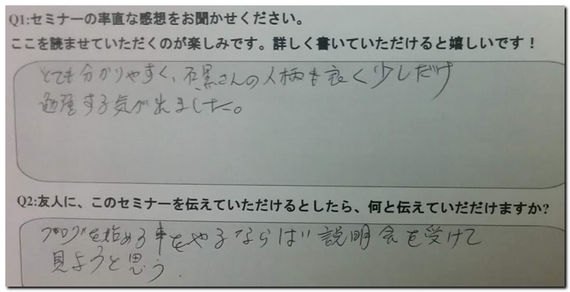 Q1:セミナーの率直な感想をお聞かせください。
ここを読ませていただくのが楽しみです。詳しく書いていただけると嬉しいです！
とても分かりやすく、石黒さんの人柄も良く少しだけ
勉強する気が出ました。
Q2:友人に、このセミナーを伝えていただけるとしたら、何と伝えていだだけますか?
ブログを始める事をやるならばい説明会を受けて
見ようと思う